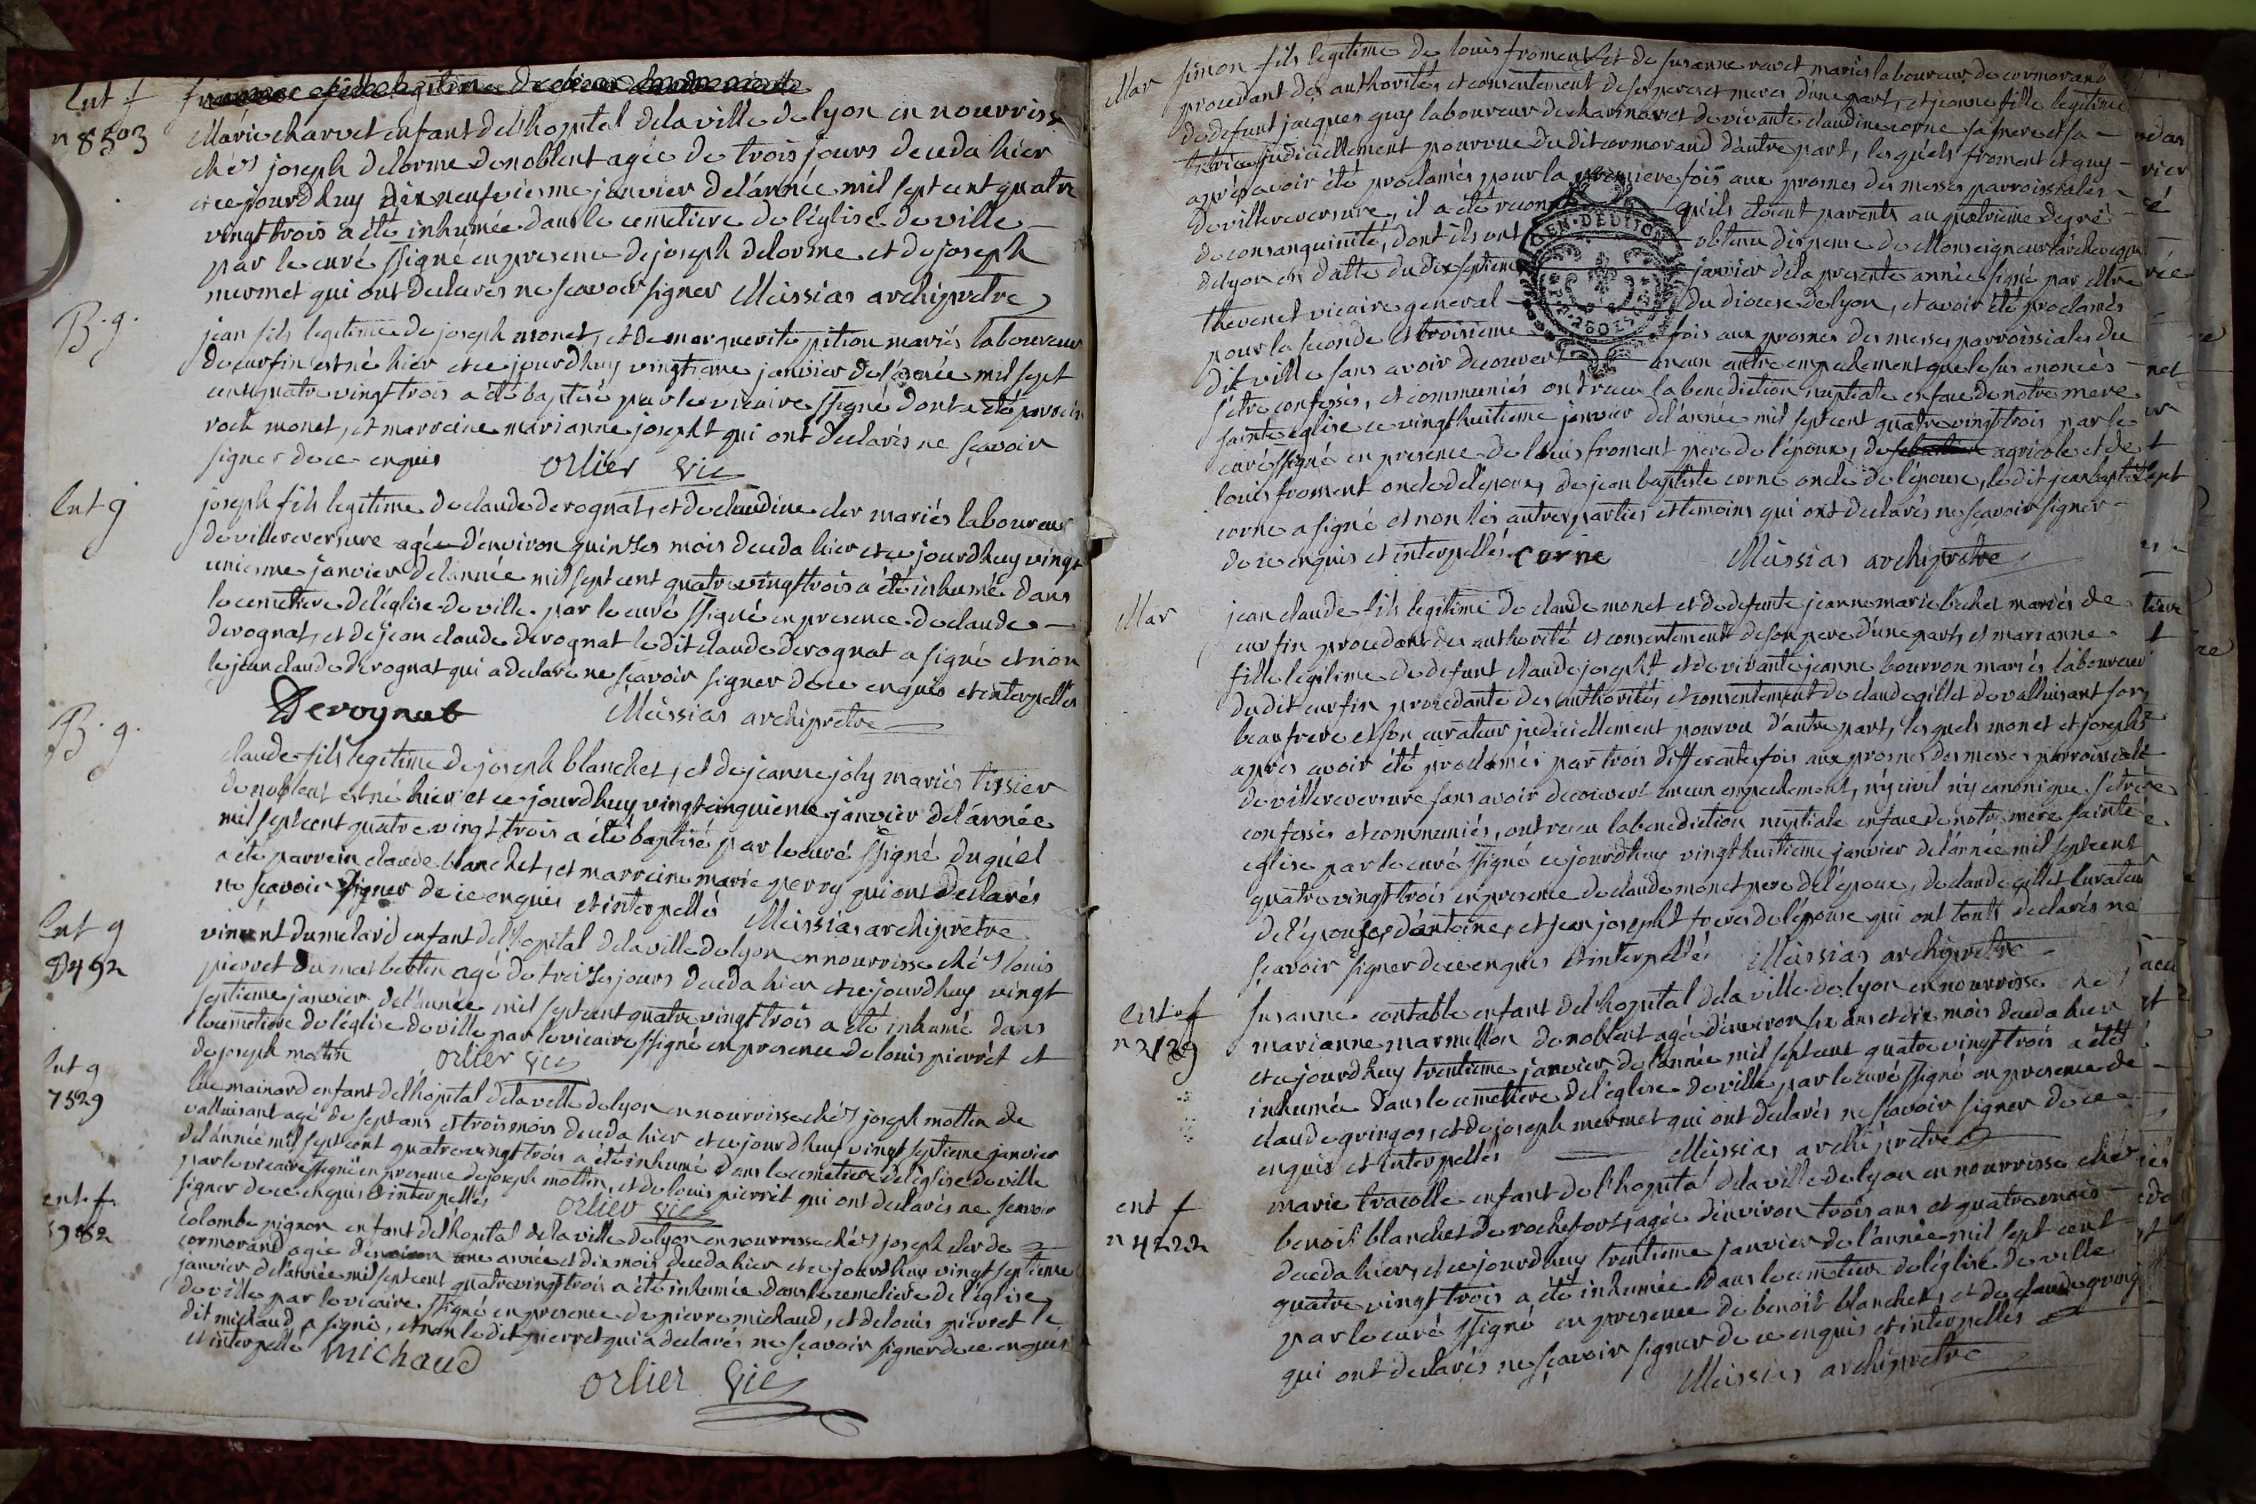 Ent f
n 8503
Marie charvet enfant de l'hopital de la ville de lyon en nourrisse
chés joseph delorme de noblent agée de trois jours deceda hier
et ce jourdhuy dix neufviesme janvier de l'année mil sept cent quatre
vingt trois a été inhumée dans le cemetiere de l'église de ville
par le curé ssigné en presence de joseph delorme et de joseph
mermet qui ont declarés ne sçavoir signer Meissias archipretre
B. g.
jean fils legitime de joseph monet, et de marguerite pition mariés laboureur
de curfin est né hier et ce jourdhuy vingtieme janvier de l'année mil sept
cent quatre vingt trois a été baptisé par le vicaire ssigné dont a été parrein
rock monet, et marreine marianne josepht qui ont declarés ne sçavoir
signer de ce enquis orlier vic
Ent g
joseph fils legitime de claude derognat, et de claudine cler mariés laboureur
de villereversure agée d'environ quinses mois deceda hier et ce jourdhuy vingt
uniesme janvier de l'année mil sept cent quatre vingt trois a été inhumé dans
le cemetiere de l'église de ville par le curé ssigné en presence de claude
derognat, et de jean claude derognat le dit claude derognat a signé et non
le jean claude derognat qui a declaré ne sçavoir signer de ce enquis et interpellés
Derognat Meissias archipretre
B. g.
claude fils legitime de joseph blanchet, et de jeanne joly mariés tissier
de noblent est né hier et ce jourdhuy vingt cinquieme janvier de l'année
mil sept cent quatre vingt trois a été baptisé par le curé ssigné duquel
a été parrein claude blanchet, et marreine marie perry qui ont declarés
ne sçavoir signer de ce enquis et interpellés Meissias archipretre
Ent g
8492
vincent dumelard enfant de l'hopital de la ville de lyon en nourrisse chés louis
pierret du mas bertin agé de treises jours deceda hier et ce jourdhuy vingt
septieme janvier de l'année mil sept cent quatre vingt trois a été inhumé dans
le cemetiere de l'église de ville par le vicaire ssigné en presence de louis pierret et
de joseph mottin orlier vic
Ent g
7529
luc mainard enfant de l'hopital de la ville de lyon en nourrisse chés joseph mottin de
valluisant agé de sept ans et trois mois deceda hier et ce jourdhuy vingt septieme janvier
de l'année mil sept cent quatre vingt trois a été inhumé dans le cemetiere de l'église de ville
par le vicaire ssigné en presence de joseph mottin, et de louis pierret qui ont declarés ne sçavoir
signer de ce enquis et interpellés orlier vic
ent. f.
colombe pignon enfant de l'hopital de la ville de lyon en nourrisse chés joseph cler de
cormorand agée d'environ une année et dix mois deceda hier et ce jourdhuy vingt septieme
janvier de l'année mil sept cent quatre vingt trois a été inhumée dans le cemetiere de l'église
de ville par le vicaire ssigné en presence de pierre michaud, et de louis pierret le
dit michaud a signé, et non le dit pierret qui a declarés ne sçavoir signer de ce enquis
et interpellé michaud
orlier vic
Mar
simon fils legitime de louis froment et de susanne ravet mariés laboureur de cormorand
procedant des authorités, et consentement de ses peres et meres d'une part, et jeanne fille legitime
de defunt jacques guy laboureur de chavinavet de vivante claudine corne sa mere et sa
tutrice judiciellement pourvue du dit cormorand d'autre part, lesquels froment et guy
après avoir été proclamés pour la premiere fois aux prosnes des messes parroissiales
de villereversure, il a été reconnu qu'ils étoient parents au quatrieme degré
de consanguinité, dont ils ont obtenu dispense de Monseigneur l'archeveque
de lyon en datte du dix septieme janvier de la presente année signé par Mre
thevenet vicaire general du diocese de lyon, et avoir été proclamés
pour la seconde et troisieme fois aux prosnes des messes parroissiales du
dit ville sans avoir decouvert aucun autre empechement que le sus enoncés
s'etre confessés, et communiés ont recu la benediction nuptiale en face de notre mere
sainte eglise ce vingt huitieme janvier de l'annee mil sept cent quatre vingt trois par le
curé ssigné en presence de louis froment pere de l'époux, de agricole et de
louis froment oncle de l'epoux, de jean baptiste corne oncle de l'épouse, le dit jean baptiste
corne a signé et non les autres parties et temoins qui ont declarés ne sçavoir signer
de ce enquis et interpellés corne Meissias archipretre
Mar
jean claude fils legitime de claude monet et de defunte jeanne marie bechet mariés de
curfin procedant des authorité et consentement de son pere d'une part, et marianne
fille legitime de defunt claude josepht et de vivante jeanne bourron mariés laboureur
du dit curfin procedante des authorités, et consentement de claude gillet de valluisant son
beau frere et son curateur judiciellement pourvu d'autre part, lesquels monet et josepht
apres avoir été proclamés par trois differente fois aux prosnes des messes parroissiale
de villereversure sans avoir decouvert aucun empechement, n'y civil n'y canonique s'etre
confessés et communiés, ont recu la benediction nuptiale en face de notre mere sainte
eglise par le curé ssigné ce jourdhuy vingt huitieme janvier de l'année mil sept cent
quatre vingt trois en presence de claude monet pere de l'epoux, de claude gillet curateur
de l'épouse, d'antoine, et jean josepht freres de l'épouse qui ont touts declarés ne
sçavoir signer de ce enquis et interpellés Meissias archipretre
ent. f
n 2129
susanne contable enfant de l'hopital de la ville de lyon en nourrisse
marianne marmillon de noblent agée d'environ six ans et dix mois deceda hier
et ce jourdhuy trentieme janvier de l'année mil sept cent quatre vingt trois a été
inhumée dans le cemetiere de l'église de ville par le curé ssigné en presence de
claude gringos, et de joseph mermet qui ont declarés ne sçavoir signer de ce
enquis et interpellés Meissias archipretre
ent f
n 4222
marie tracolle enfant de l'hopital de la ville de lyon en nourrisse chés
benoit blanchet de rochefort, agée d'environ trois ans et quatre mois
deceda hier, et ce jourdhuy trentieme janvier de l'année mil sept cent
quatre vingt trois a été inhumée dans le cemetiere de l'église de ville
par le curé ssigné en presence de benoit blanchet, et de claude gringos
qui ont declarés ne sçavoir signer de ce enquis et interpellés
Meissias archipretre